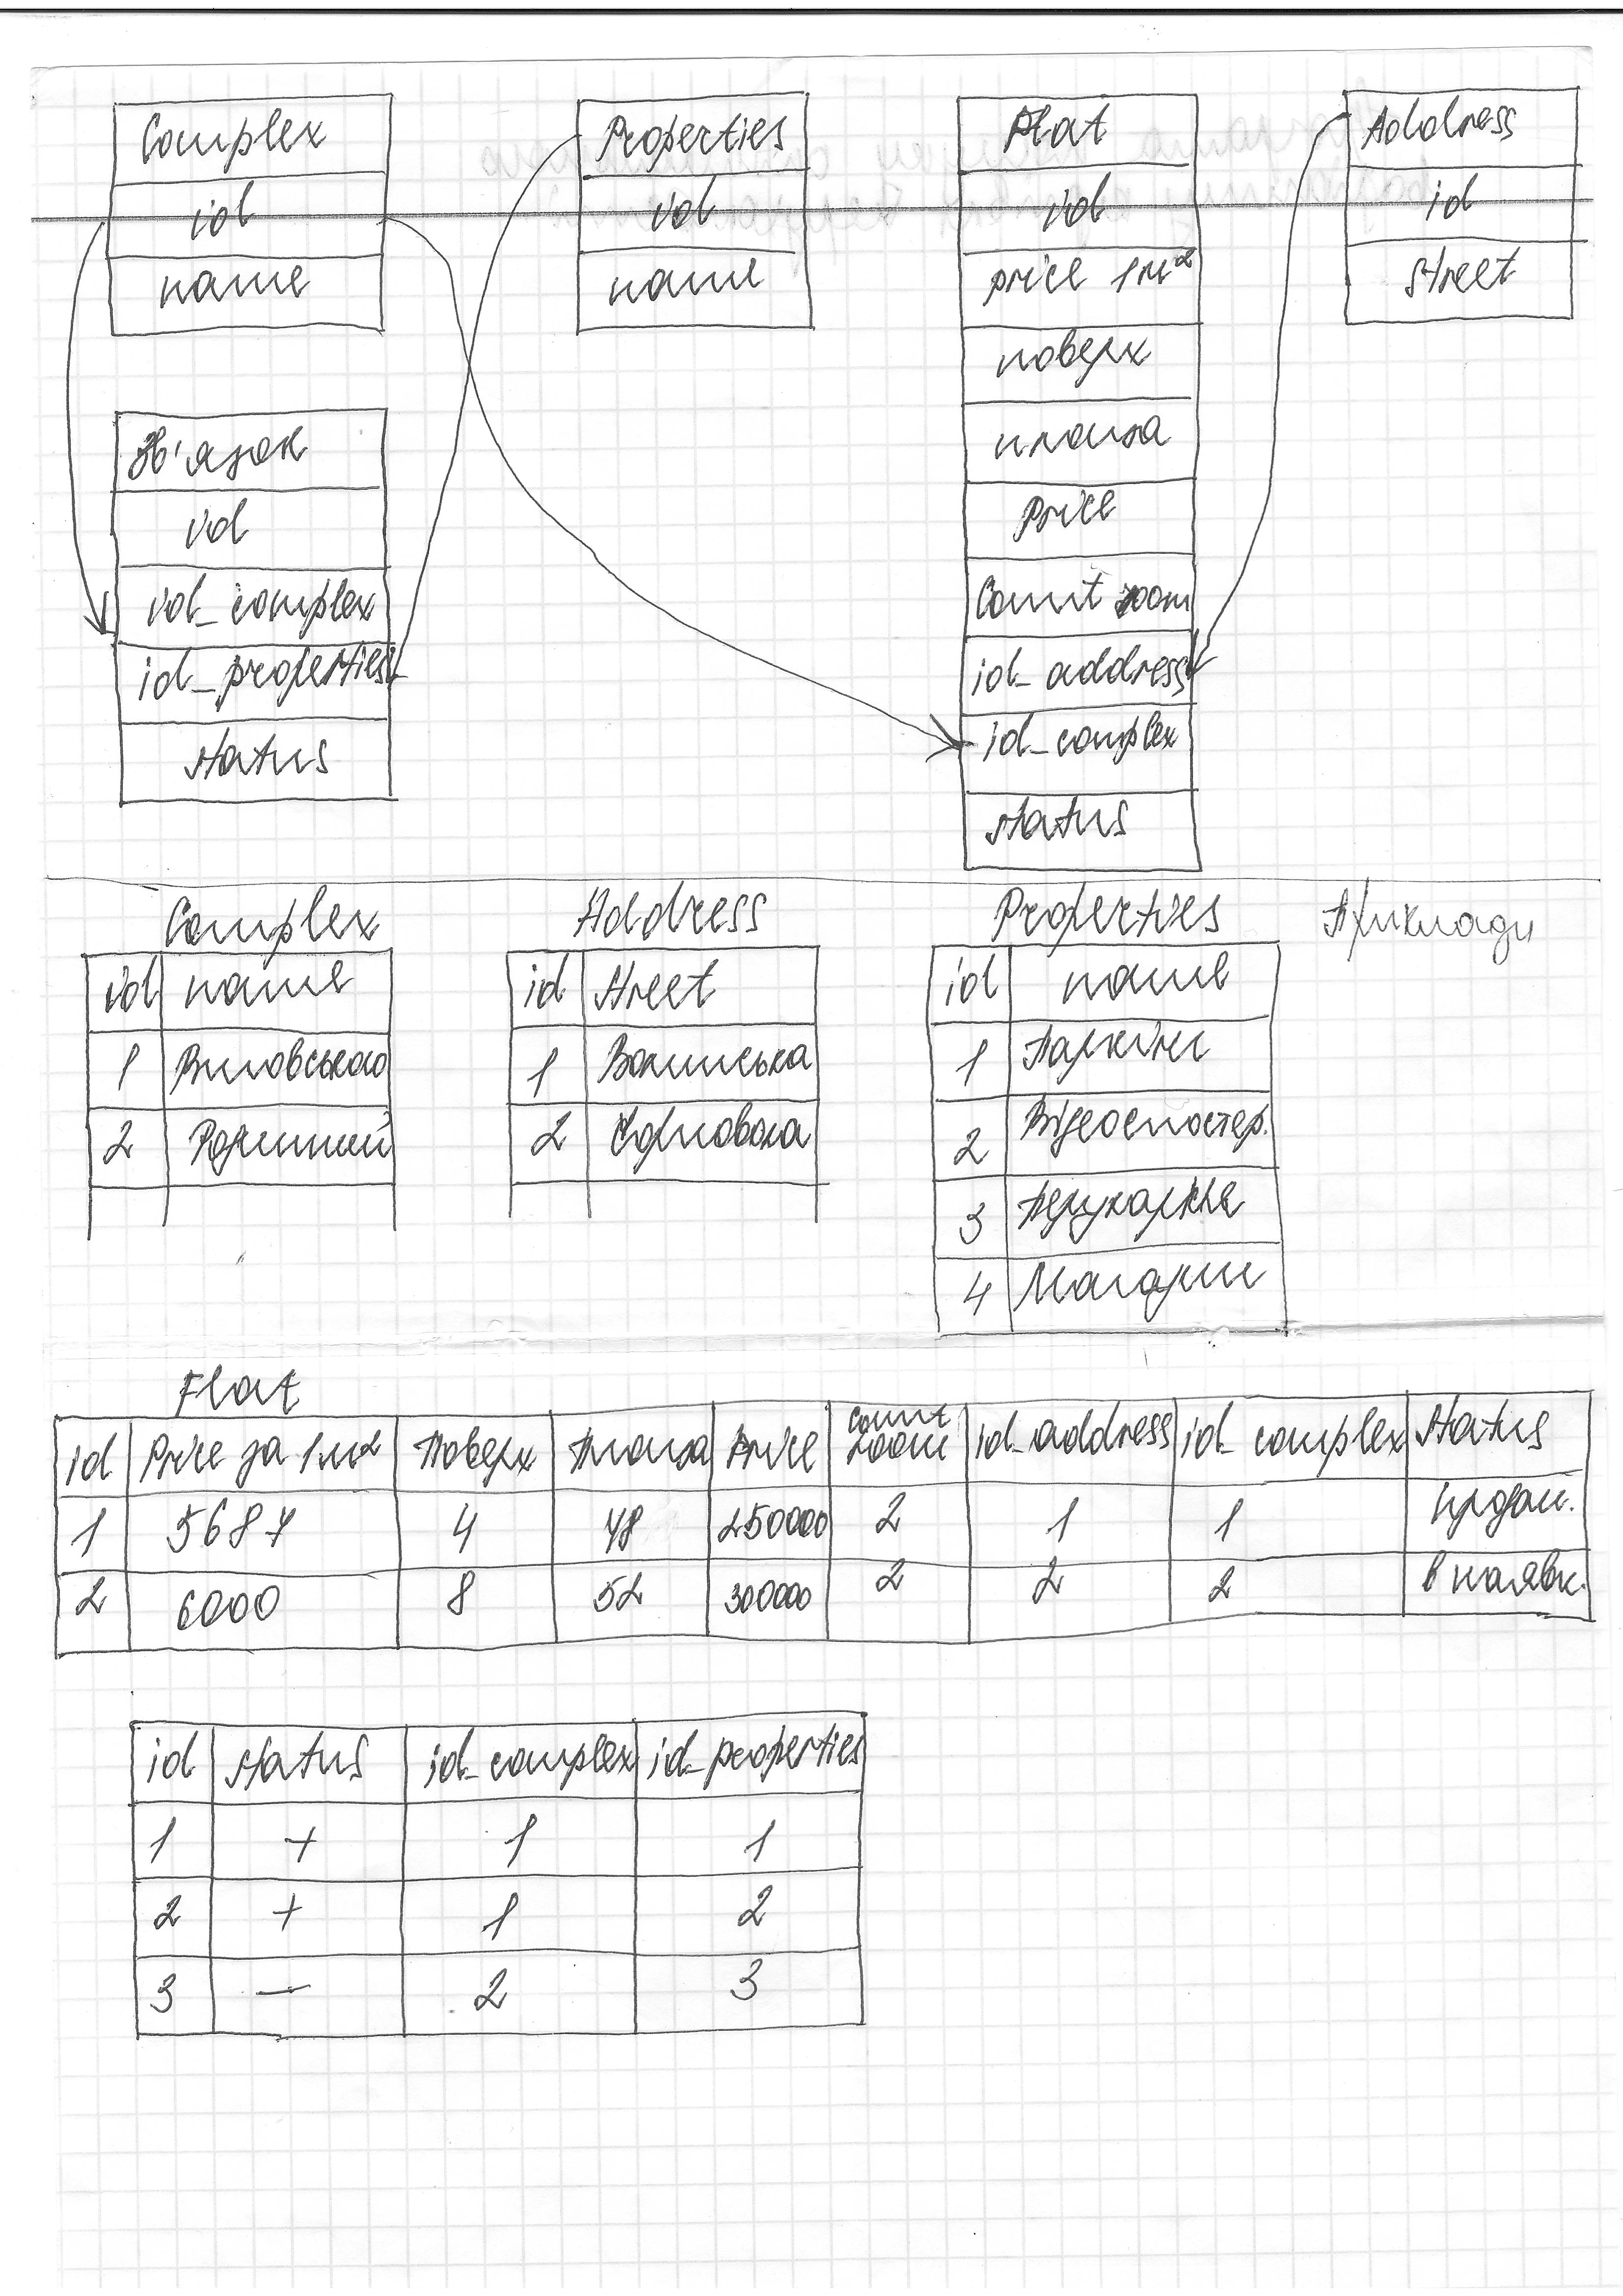 Complex
id
name
Properties
id
name
Flat
id
price 1м²
поверх
площа
price
Count room
id_address
id_complex
status
Address
id
street
Зв'язок
id
id_complex
id_properties
status
Приклади
Complex
id name
1
2 Родинний
Address
id street
1 Волинська
2
Properties
id name
1 Паркінг
2 Відеоспостер.
3 Перукарня
4 Магазин
Flat
id Price за 1м² Поверх Площа Price count room id_address id_complex status
1 5687 4 48 250000 2 1 1 продан.
2 6000 8 52 300000 2 2 2 в наявн.
id status id_complex id_properties
1 + 1 1
2 + 1 2
3 — 2 3